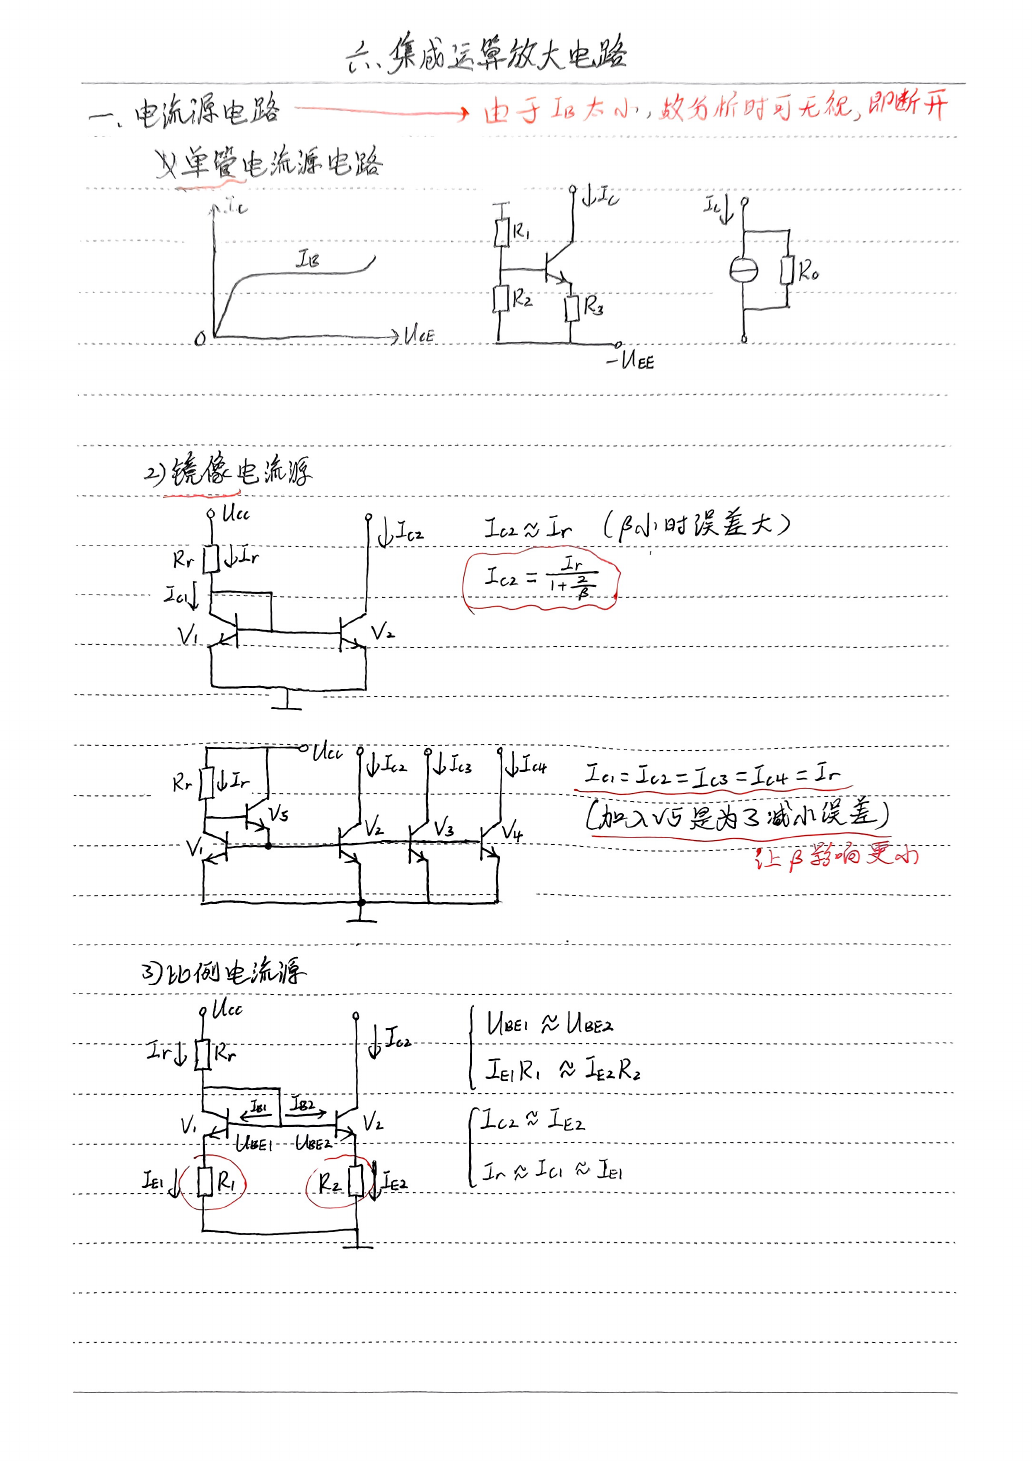 六、集成运算放大电路
一、电流源电路 → 由于 IB 太小,故分析时可无视,即断开
1)单管电流源电路
Ic
IB
O
UCE
R1
R2
R3
Ic
-UEE
Ic
Ro
2)镜像电流源
Ucc
Rr
Ir
Ic1
V1
V2
Ic2
Ic2≈Ir (β小时误差大)
Ic2 = Ir/(1+2/β)
Ucc
Rr
Ir
V5
V1
V2
V3
V4
Ic2
Ic3
Ic4
Ic1=Ic2=Ic3=Ic4=Ir
(加入V5是为了减小误差)
让β影响更小
3)比例电流源
Ucc
Ir
Rr
Ic2
IB1
IB2
V1
V2
UBE1
UBE2
IE1
R1
R2
IE2
UBE1 ≈ UBE2
IE1R1 ≈ IE2R2
Ic2 ≈ IE2
Ir ≈ Ic1 ≈ IE1